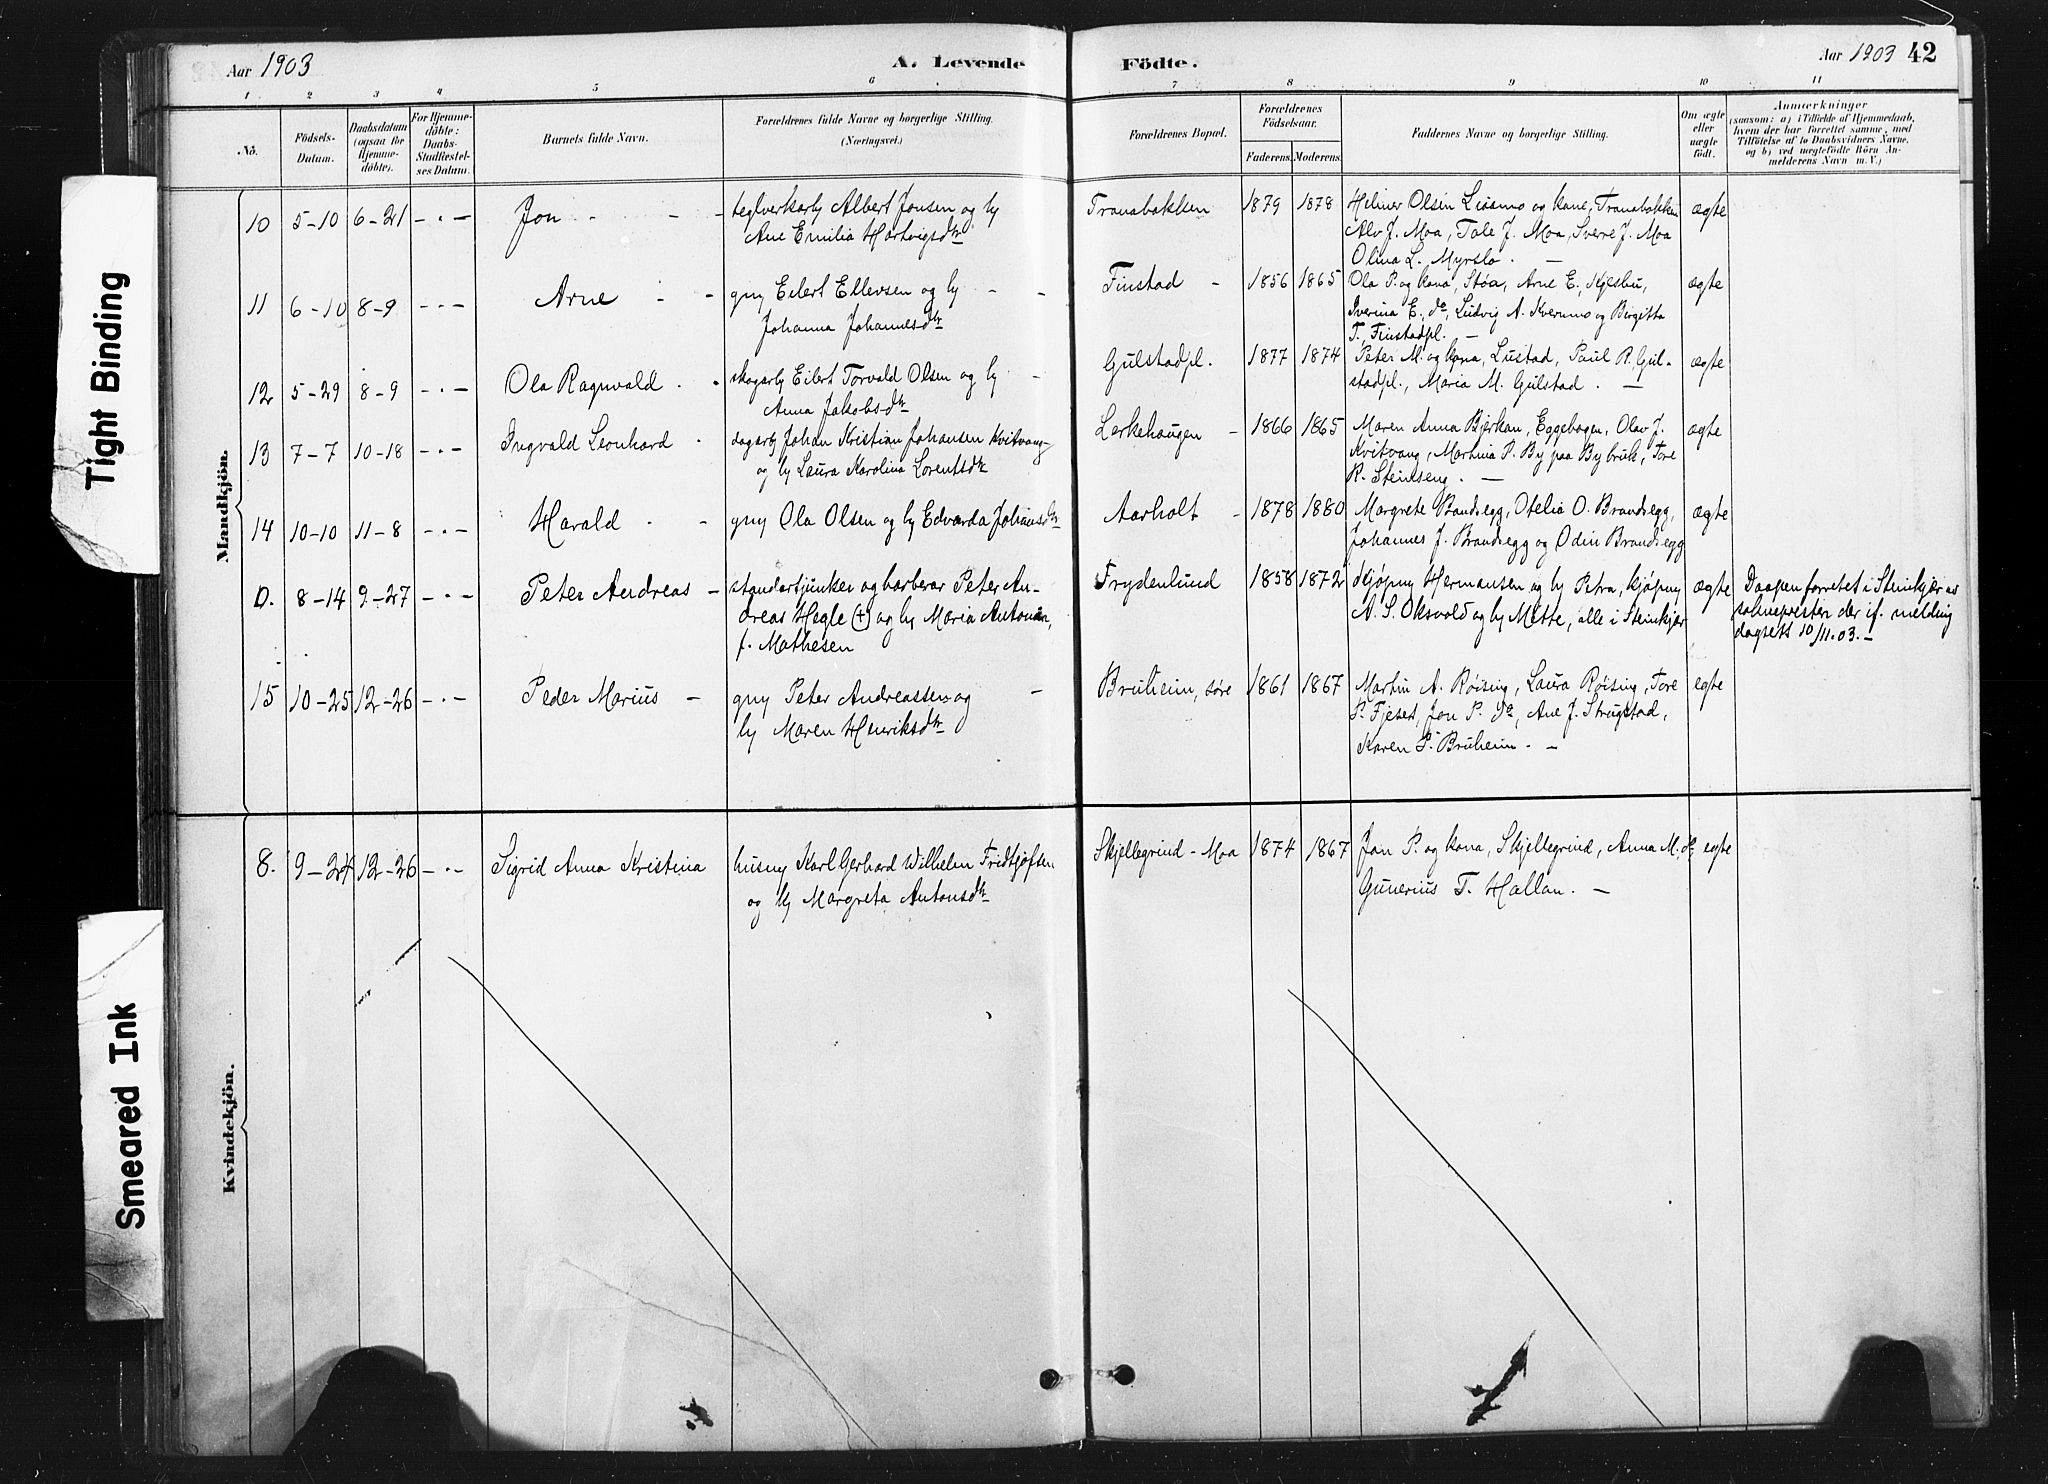 Aar 1903
A. Levende Födte.
Aar 1903 42
1 2 3 4 5 6 7 8 9 10 11
No.
Födsels-
Datum.
Daabsdatum
(ogsaa for
Hjemme-
døbte).
For Hjemme-
døbte:
Daabs-
Stadfæstel-
ses Datum.
Barnets fulde Navn.
Forældrenes fulde Navne og borgerlige Stilling.
(Næringsvei.)
Forældrenes Bopæl.
Forældrenes
Fødselsaar.
Faderens. Moderens.
Faddernes Navne og borgerlige Stilling.
Om ægte
eller
uægte
født.
Anmærkninger
(saasom: a) i Tilfælde af Hjemmedaab,
hvem der har forrettet samme, med
Tilføielse af to Daabsvidners Navne,
og b) ved uægtefødte Börn An-
melderens Navn m. V.)
Mandkjön.
10 5-10 6-21 - Jon - teglverkarb Albert Jonsen og h
Ane Emilia Hartvigsdtr
Tranabakken 1879 1878 Helmer Olsen Liasmo og kone, Tranabakken ægte
Alv J. Moa, Tale J. Moa, Sverre J. Moa
Olina L. Myrslo. -
11 6-10 8-9 - Arne - gmd Eilert Ellevsen og h -
Johanna Johannesdtr
Finstad - 1856 1865 Ola P. og kona, Støa, Arne E., Kjesbu, ægte
Iverina E. do, Ludvig A. Kvernmo og Birgitta
T. Finstadpl. -
12 5-29 8-9 - Ola Ragnvald - skogarb Eilert Torvald Olsen og h -
Anna Jakobsdtr
Gulstadpl. 1877 1874 Peter M. og kona, Lustad, Paul R. Gul-
stadpl., Maria M. Gulstad. - ægte
13 7-7 10-18 - Ingvald Leonhard - dagarb Johan Kristian Johansen Kvitvang
og h Laura Karolina Lorentsdtr
Lerkehaugen - 1866 1865 Maren Anna Bjerkan, Eggebogen, Olav J. ægte
Kvitvang, Martina P. By paa By bruk, Tore
R. Steinseng. -
14 10-10 11-8 - Harald - gmd Ola Olsen og h Edvarda Johansdtr
Aarholt - 1878 1880 Margrete Brandsegg, Otelia O. Brandsegg, ægte
Johannes J. Brandsegg og Odin Brandsegg
D. 8-14 9-27 - Peter Andreas - standartjunker og barberar Peter An-
dreas Hegle (+) og h Maria Antonia,
f. Mathesen
Frydenlund 1858 1872 Kjøpmd Hermansen og h Petra, kjøpmd ægte
A. S. Oksvold og h Mette, alle i Steinkjær
Daapen forrettet i Steinkjær av
soknepresten der if. melding
dagsett 10/11.03. -
15 10-25 12-26 - Peder Marius - gmd Peter Andreassen og -
h Maren Henriksdtr
Bruheim, søre 1861 1867 Martin A. Røising, Laura Røising, Tore egte
P. Fjeset, Jon P. do, Ane J. Strugstad,
Karen P. Bruheim. -
Kvindekjön.
8. 9-24 12-26 - Sigrid Anna Kristina husmd Karl Gerhard Wilhelm Fridtjofsen
og h Margreta Antonsdtr
Skjellegrind-Moa 1874 1867 Jon P. og kona, Skjellegrind, Anna M. do, egte
Gunerius T. Hallan. -
Tight Binding
Smeared Ink